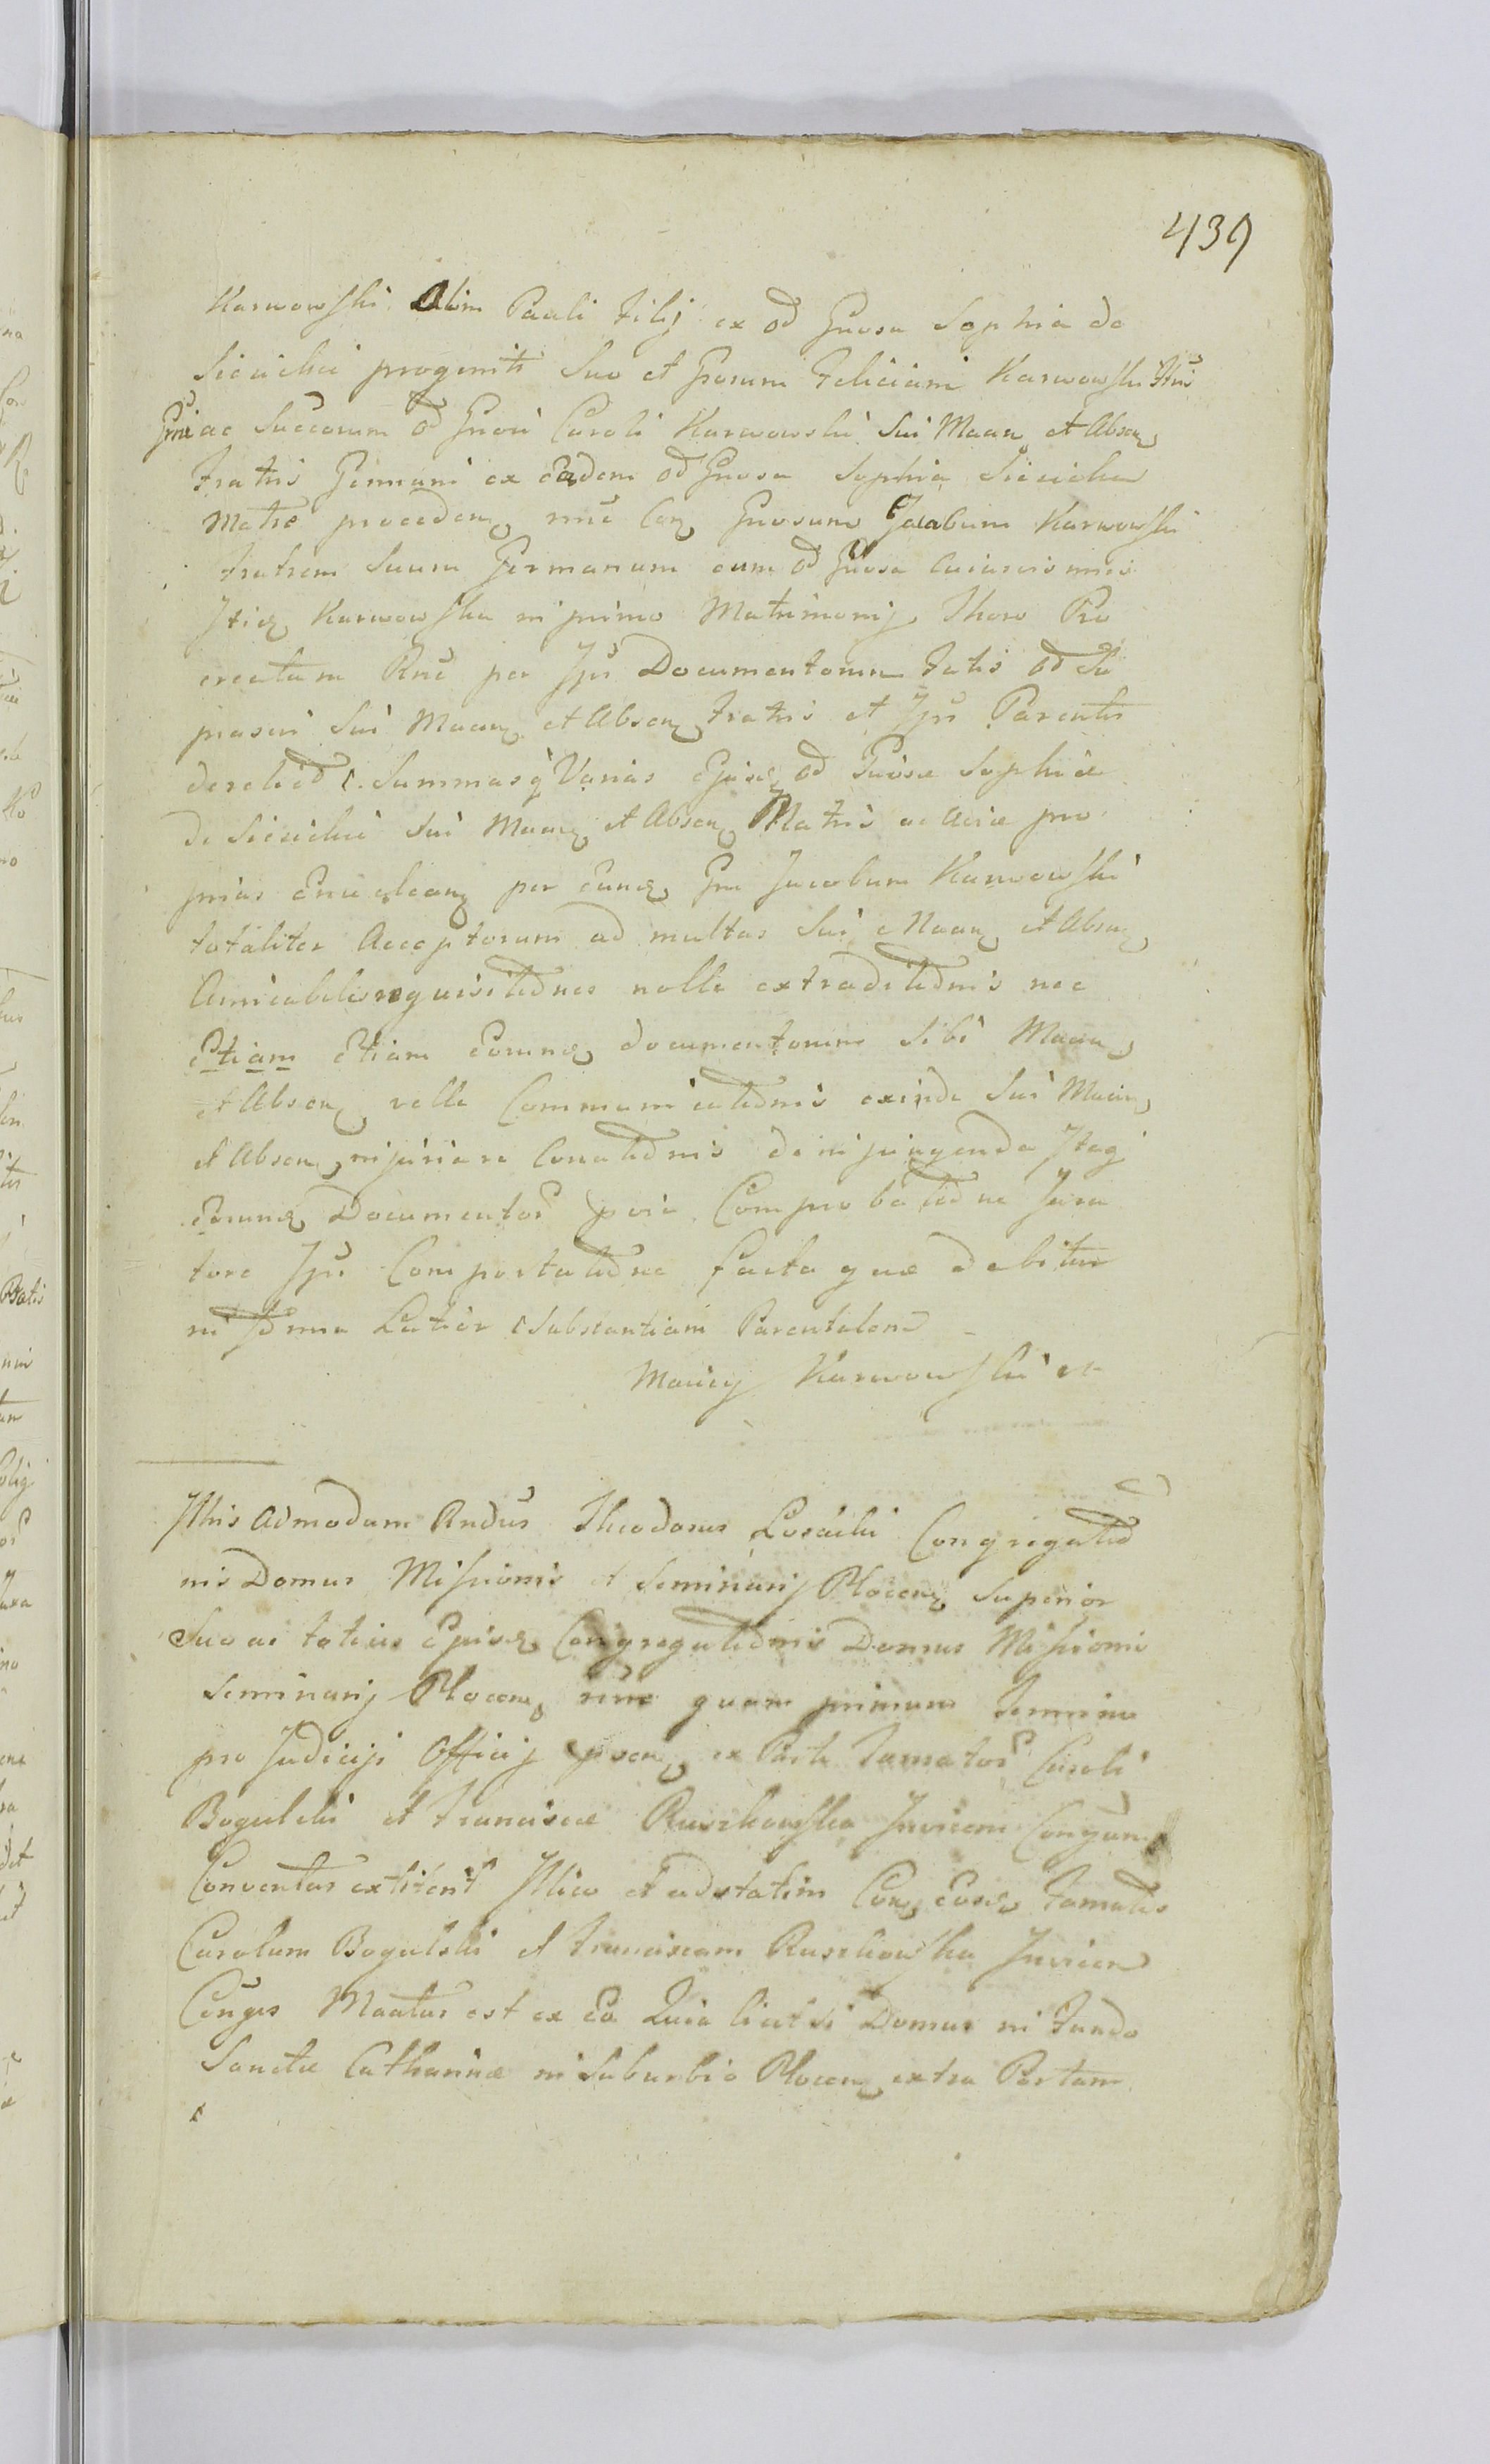 439
Karwowski Olim Pauli Filij ex od Gnosa Sophia de
Siciichi progeniti Suo et Gnorum Feliciani Karwowski
Gni ac Succorum od Gnosi Caroli Karwowski Sui Maan et Absen
Fratris Germani ex Eadem od Gnosa Sophia
Matre proceden nne Con Gnosum Jacobum Karwowski
Fratrem Suum Germanum cum od Gnosa
Karwowska in primo Matrimonij Thoro Pro
creatum Rne per Ipsi Documentorum Fatis od
Sui Maan et Absen Fratris et Ipsi Parentis
derelict Summasq Varias Ejusd od Gnosæ Sophiæ
de Siciichi Sui Maan et Absen Matris ac Aviæ pro
prias per Eund Gnu Jacobum Karwowski
totaliter Acceptorum ad multas Sui Maan et Absen
Amicabiles requisitiones nolle extraditionis nec
Etiam Etiam Eorund documentorum Sibi Maan
et Absen velle Communicationis exinde Sui Maan
et Absen injuriare Conationis de injungenda Itaq
Eorund Documentor Comprobatione Jura
tore Ipsi Comportatione facta quæ debitur
in Latior Substantiam Parentalem
Maciej Karwowski
Admodum Rndus Theodorus Congregatio
nis Domus Missionis et Seminarij Plocen Superior
Suo ac totius Ejusd Congregationis Domus Missionis
Seminarij Plocen nne quam primum Termino
pro Judicijs Officij psen ex Parte Famator Caroli
Bogulski et Franciscæ Ruszkowska Invicem Conjum
Conventus extitent Illico et adstatim Con Eosd Famatos
Carolum Bogulski et Franciscam Ruszkowska Invicem
Conjges Maatus est ex Eo Quia licet si Domus in Fundo
Sanctæ Catharinæ in Suburbio Plocen extra Portam